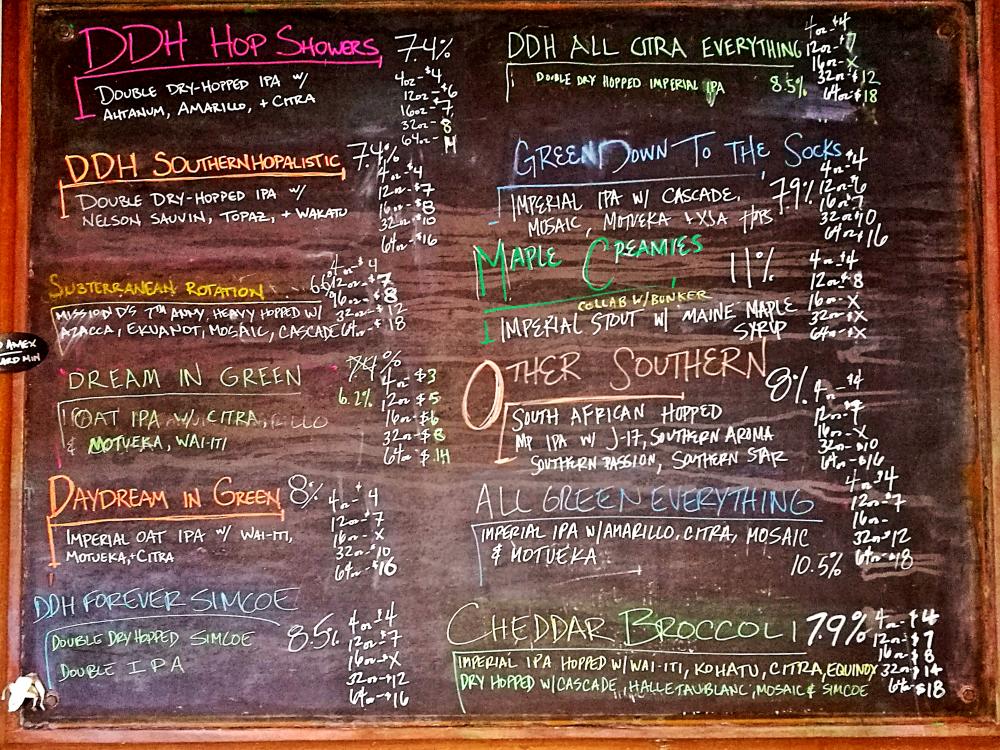 DDH HOP SHOWERS 7.4%
DOUBLE DRY-HOPPED IPA W/
AHTANUM, AMARILLO, + CITRA
4oz - $4
12oz - $6
16oz - $7
32oz - 8
64oz - 14
DDH SOUTHERNHOPALISTIC 7.4%
DOUBLE DRY-HOPPED IPA W/
NELSON SAUVIN, TOPAZ, + WAKATU
4oz - $4
12oz - $7
16oz - $8
32oz - $10
64oz - $16
SUBTERRANEAN ROTATION
MISSION D'S 7TH ANNY, HEAVY HOPPED W/
AZACCA, EKUANOT, MOSAIC, CASCADE
4oz - $4
12oz - $7
16oz - $8
32oz - $12
64oz - $18
DREAM IN GREEN
6.2%
OAT IPA W/ CITRA,
& MOTUEKA, WAI-ITI
4oz - $3
12oz - $5
16oz - $6
32oz - $8
64oz - $14
DAYDREAM IN GREEN 8%
IMPERIAL OAT IPA W/ WAI-ITI,
MOTUEKA, + CITRA
4oz - $4
12oz - $7
16oz - X
32oz - $10
64oz - $16
DDH FOREVER SIMCOE
DOUBLE DRY HOPPED SIMCOE 8.5%
DOUBLE IPA
4oz - $4
12oz - $7
16oz - X
32oz - $12
64oz - $16
DDH ALL CITRA EVERYTHING
DOUBLE DRY HOPPED IMPERIAL IPA 8.5%
4oz - $4
12oz - $7
16oz - X
32oz - $12
64oz - $18
GREEN DOWN TO THE SOCKS
IMPERIAL IPA W/ CASCADE, 7.9%
MOSAIC, MOTUEKA + XJA
4oz - $4
12oz - $6
16oz - $7
32oz - $10
64oz - $16
MAPLE CREAMIES 11%
COLLAB W/ BUNKER
IMPERIAL STOUT W/ MAINE MAPLE
SYRUP
4oz - $4
12oz - $8
16oz - X
32oz - X
64oz - X
OTHER SOUTHERN 8%
SOUTH AFRICAN HOPPED
IMP IPA W/ J-17, SOUTHERN AROMA
SOUTHERN PASSION, SOUTHERN STAR
4oz - $4
12oz - 7
16oz - X
32oz - $10
64oz - $16
ALL GREEN EVERYTHING
IMPERIAL IPA W/ AMARILLO, CITRA, MOSAIC
& MOTUEKA
10.5%
4oz - $4
12oz - $7
16oz -
32oz - $12
64oz - $18
CHEDDAR BROCCOLI 7.9%
IMPERIAL IPA HOPPED W/ WAI-ITI, KOHATU, CITRA, EQUINOX
DRY HOPPED W/ CASCADE, HALLETAUBLANC, MOSAIC & SIMCOE
4oz - $4
12oz - $7
16oz - $8
32oz - $14
64oz - $18
AMEX